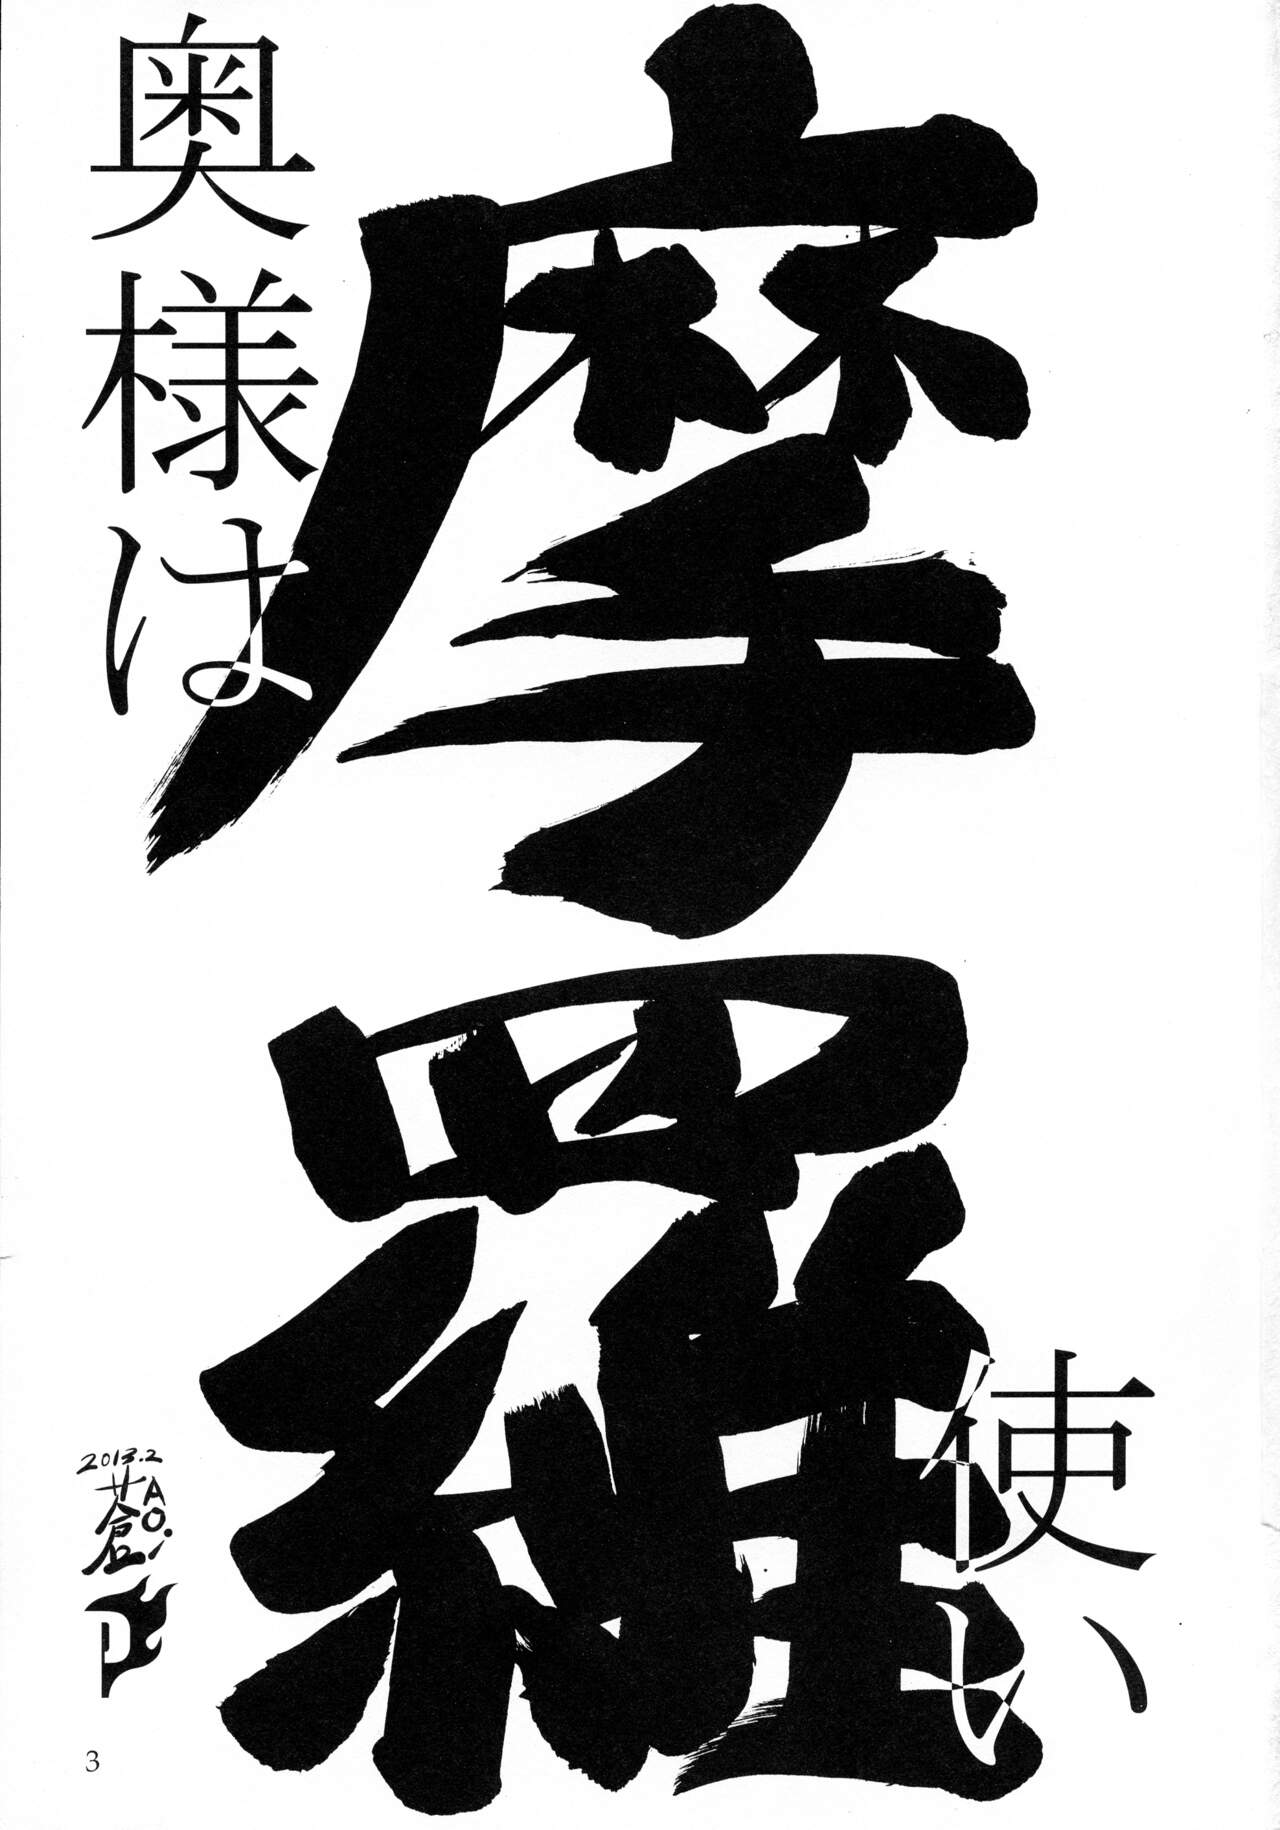 奥様は
摩羅
使い
2013.2
蒼倉
AOi
P
3